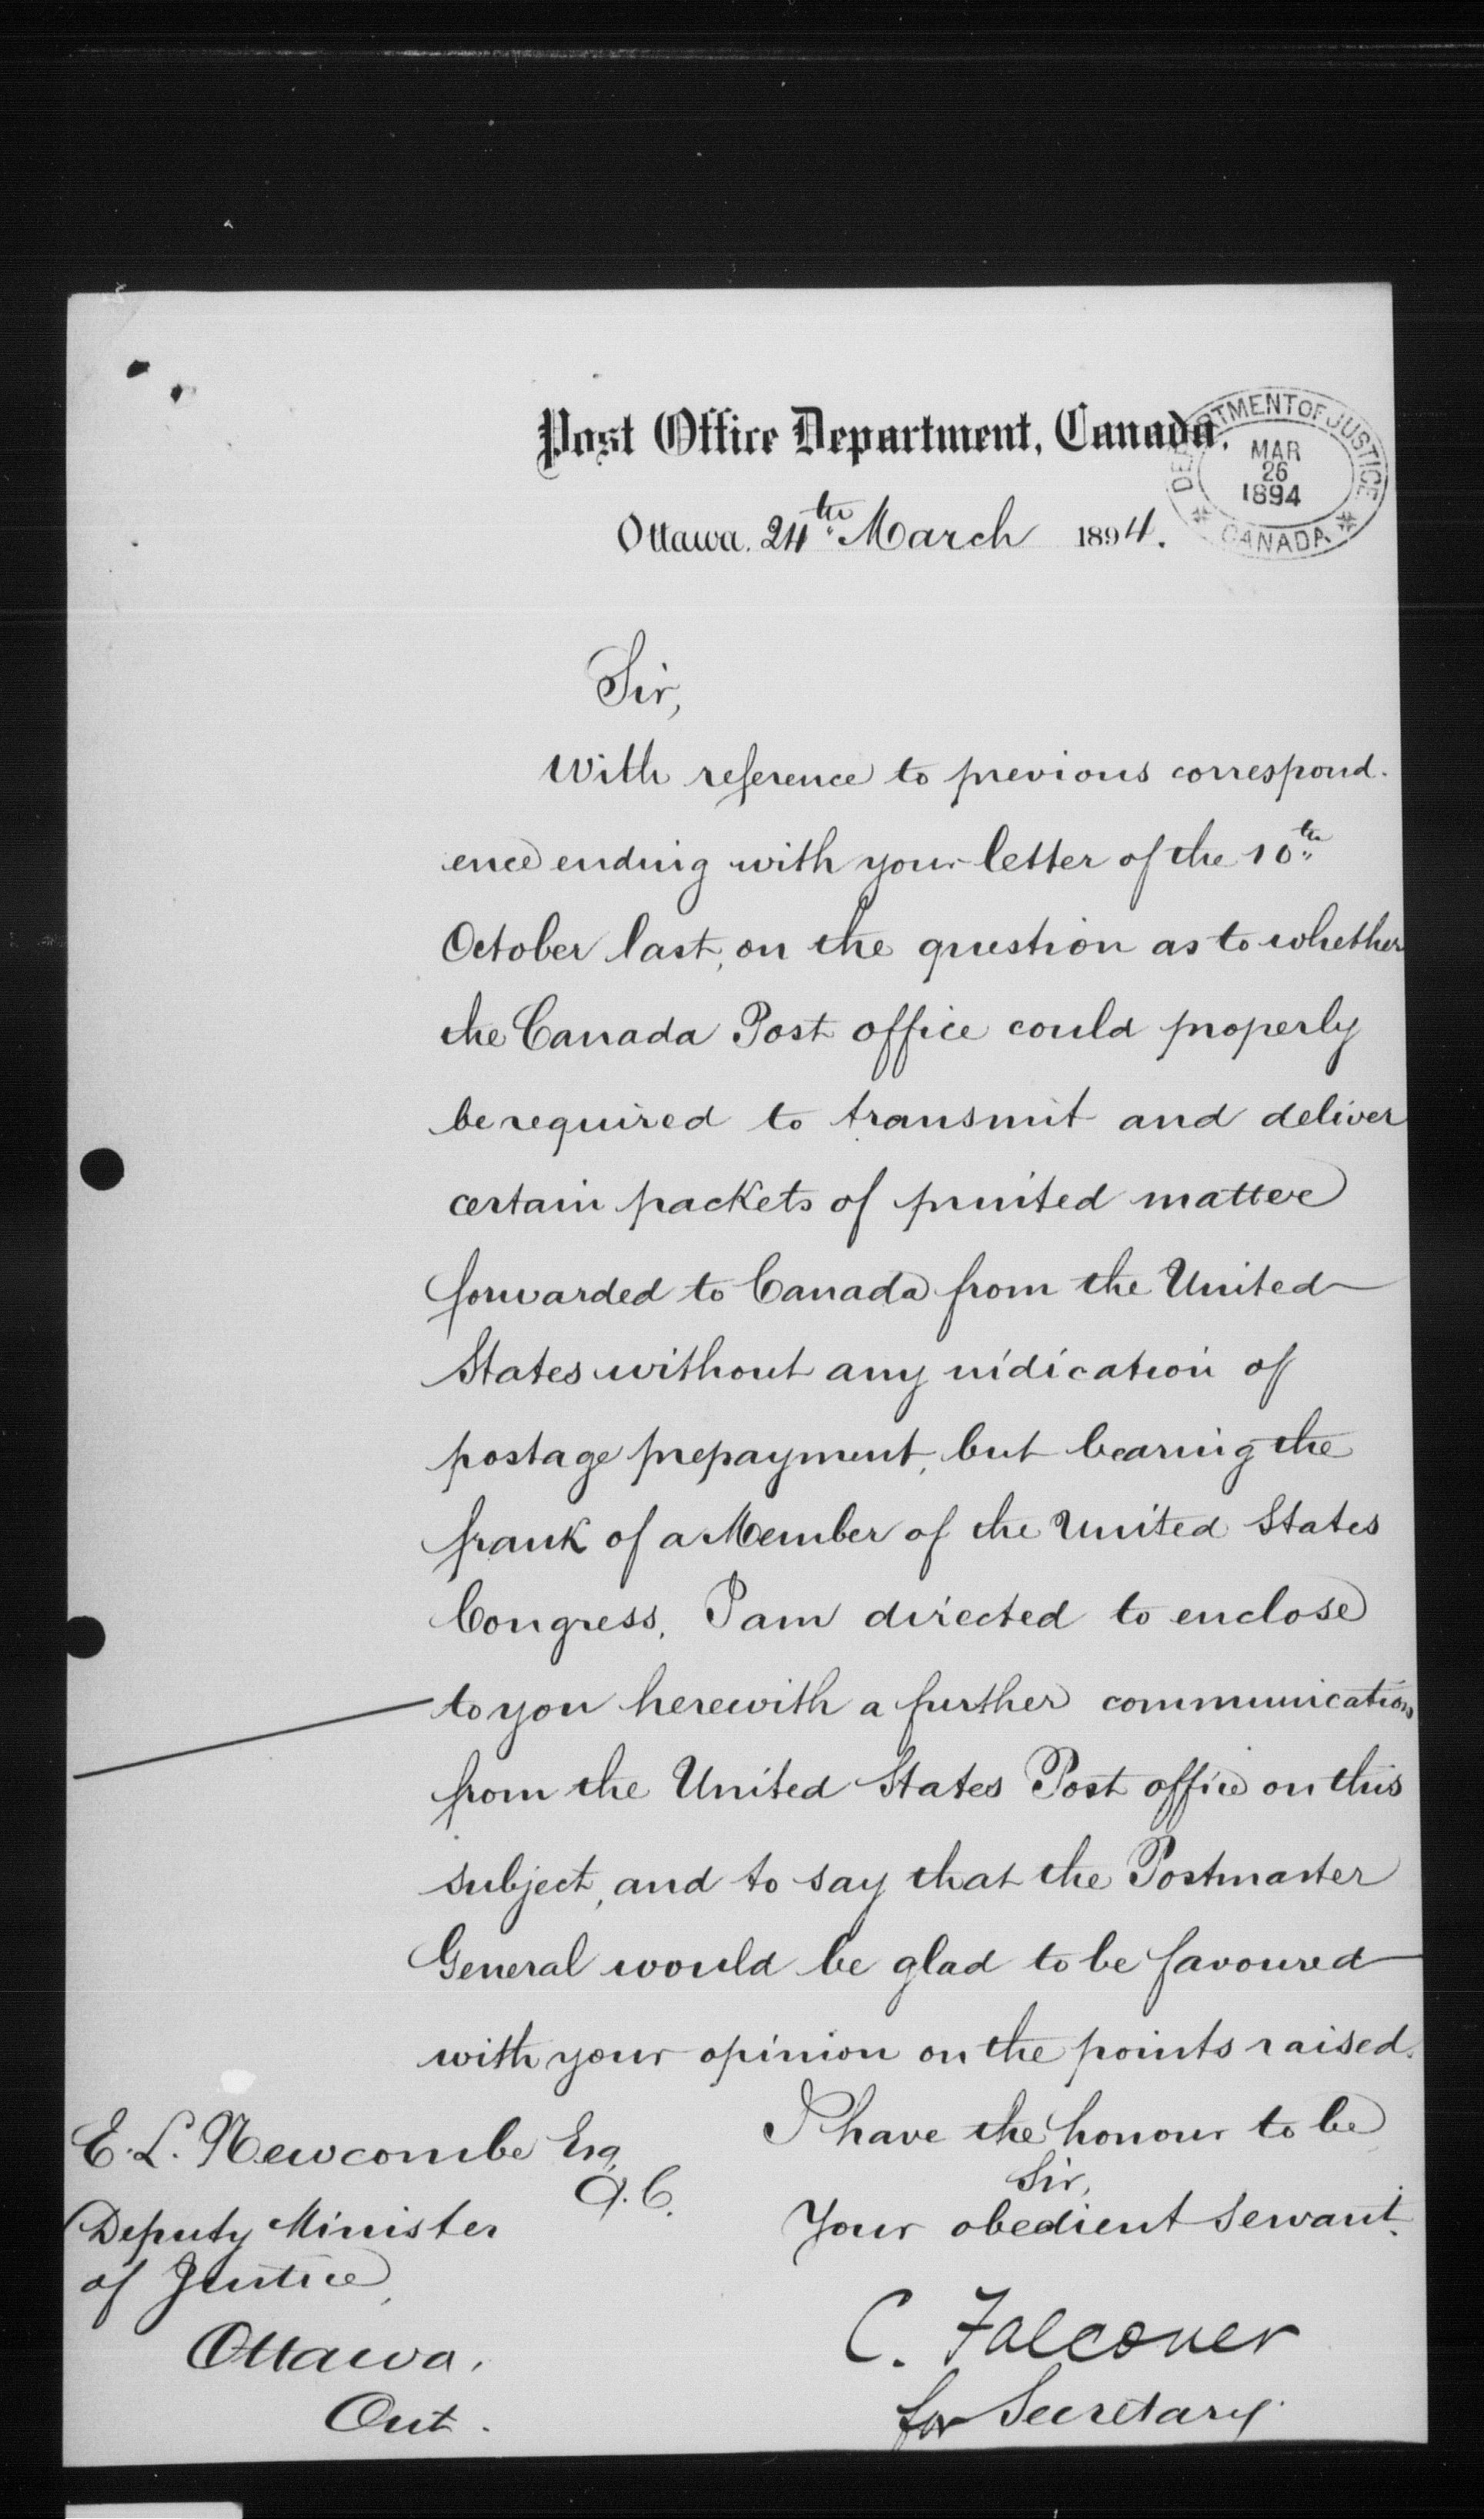 Post Office Department, Canada.
DEPARTMENT OF JUSTICE
MAR
26
1894
CANADA
Ottawa. 24th March 1894.
Sir,
With reference to previous correspond-
ence ending with your letter of the 10th
October last, on the question as to whether
the Canada Post office could properly
be required to transmit and deliver
certain packets of printed matter
forwarded to Canada from the United
States without any indication of
postage prepayment, but bearing the
frank of a Member of the United States
Congress, I am directed to enclose
to you herewith a further communication
from the United States Post office on this
subject, and to say that the Postmaster
General would be glad to be favoured
with your opinion on the points raised.
I have the honour to be
Sir,
Your obedient servant.
C. Falconer
for Secretary.
E. L. Newcombe Esq.
Q.C.
Deputy Minister
of Justice,
Ottawa.
Ont.